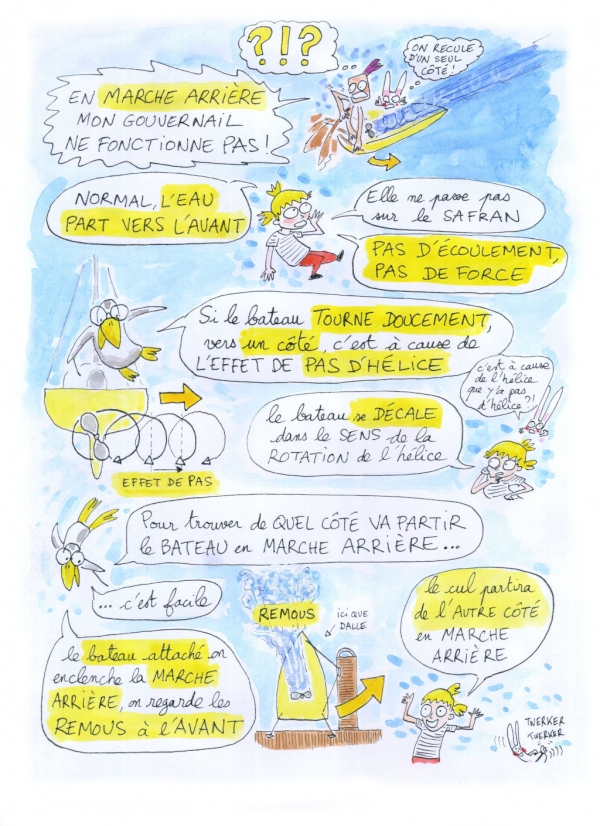 ?!?
ON RECULE
D'UN SEUL
CÔTÉ!
EN MARCHE ARRIÈRE
MON GOUVERNAIL
NE FONCTIONNE PAS!
NORMAL, L'EAU
PART VERS L'AVANT
Elle ne passe pas
sur le SAFRAN
PAS D'ÉCOULEMENT,
PAS DE FORCE
Si le bateau TOURNE DOUCEMENT,
vers un côté, c'est à cause de
L'EFFET DE PAS D'HÉLICE
c'est à cause
de l'hélice
que y'a pas
d'hélice?!
le bateau se DÉCALE
dans le SENS de la
ROTATION de l'hélice
EFFET DE PAS
Pour trouver de QUEL CÔTÉ VA PARTIR
le BATEAU en MARCHE ARRIÈRE...
... c'est facile
le bateau attaché on
enclenche la MARCHE
ARRIÈRE, on regarde les
REMOUS à l'AVANT
REMOUS
ici QUE
DALLE
le cul partira
de l'AUTRE CÔTÉ
en MARCHE
ARRIÈRE
TWERKER
TWERKER